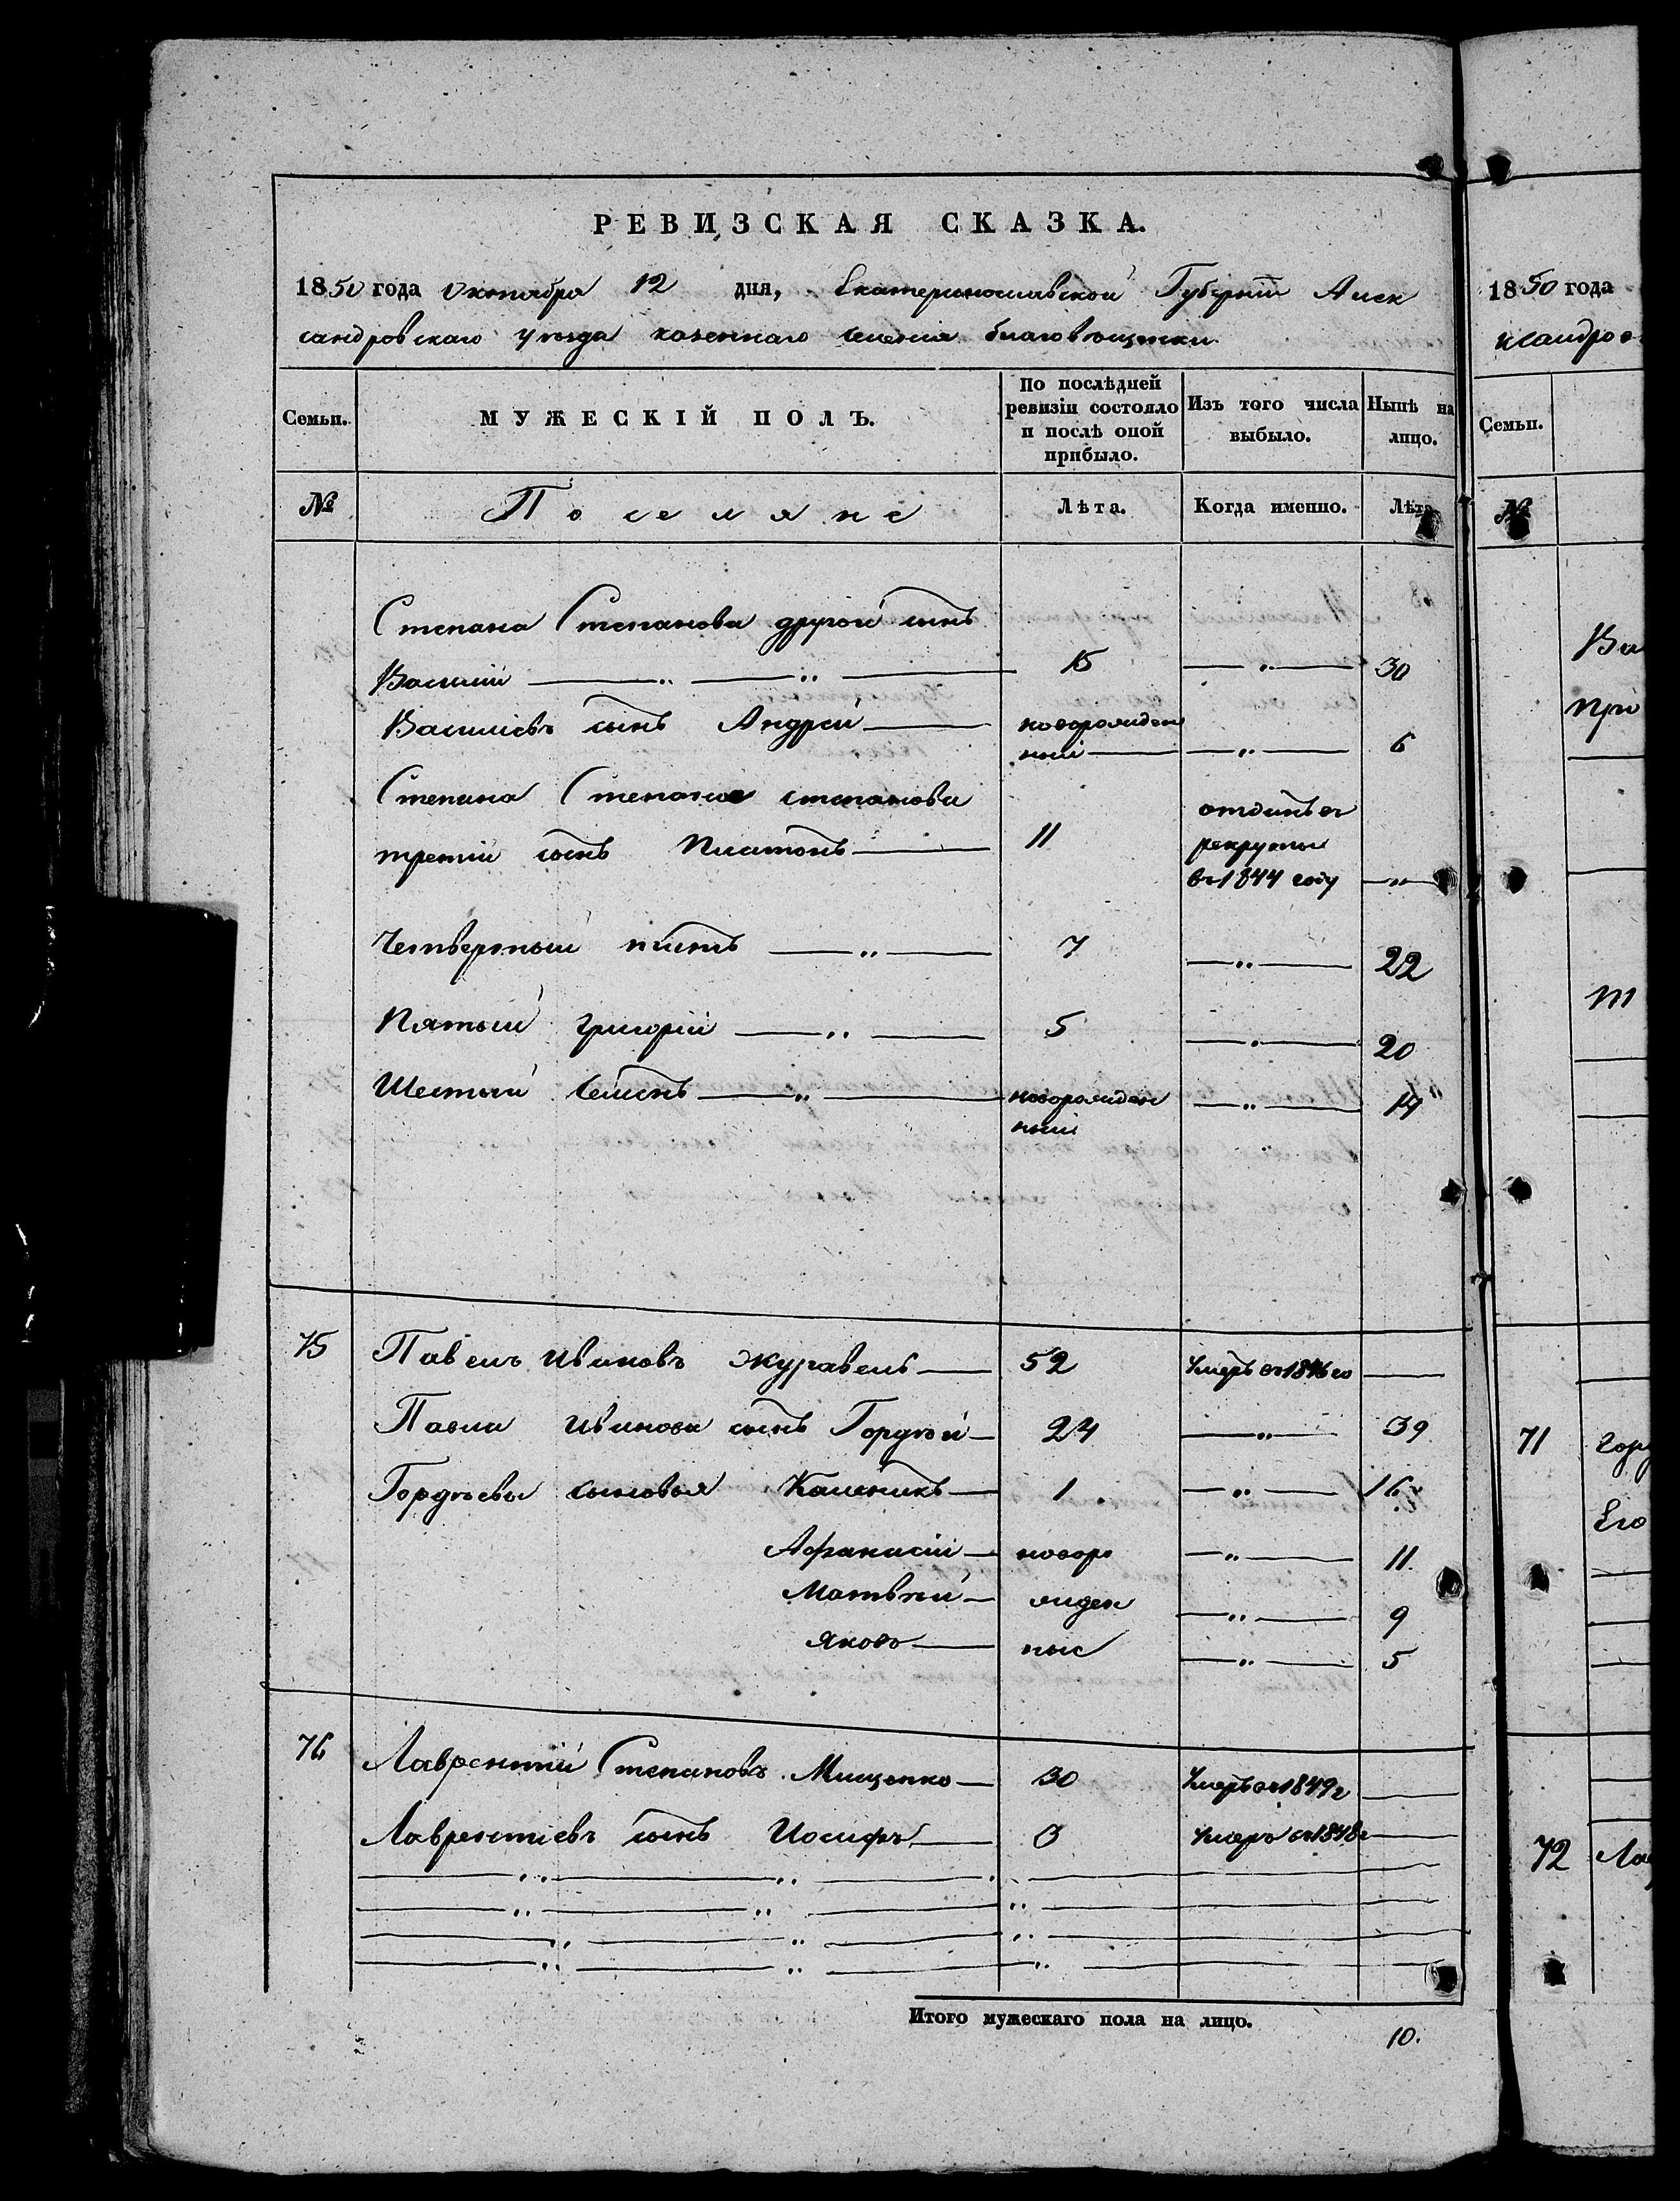 РЕВИЗСКАЯ СКАЗКА.
1850 года Октября 12 дня, Екатеринославской Губерніи Алек
сандровскаго уѣзда казеннаго селенія благовѣщенки
Семьи. МУЖЕСКІЙ ПОЛЪ. По послѣдней ревизіи состояло и послѣ оной прибыло. Изъ того числа выбыло. Нынѣ на лицо.
№ Поселяне Лѣта. Когда именно. Лѣта
Степана Степанова другой сынъ
Василій — „ — „ — 15 — „ — 30
Василіевъ сынъ Андрей — новорожден
ный — — „ — 6
Степана Степанова степанова
третій сынъ Платонъ — 11 отданъ въ
рекруты
въ 1844 году — „ —
Четвертый — „ — 7 — „ — 22
Пятый Григорій — „ — 5 — „ — 20
Шестый Семенъ — „ — новорожден
ный — „ — 14
75 Павелъ Ивановъ Журавель — 52 Умеръ въ 1846 го —
Павла Иванова сынъ Гордѣй — 24 — „ — 39
Гордѣевы сыновья Калиникъ — 1 — „ — 16
Афанасій — новоро — „ — 11.
Матвѣй — жден — „ — 9
Яковъ — ные — „ — 5
76 Лаврентій Степановъ Мищенко — 30 Умеръ въ 1849 г —
Лаврентіевъ сынъ Иосифъ — Умеръ въ 1848 г —
Итого мужескаго пола на лицо. 10.
1850 года
ксандров
Семьи.
№
Ва
При
т
71 Горд
Его
72 Лав